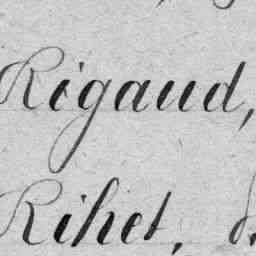 Rigaud,
Rihet,